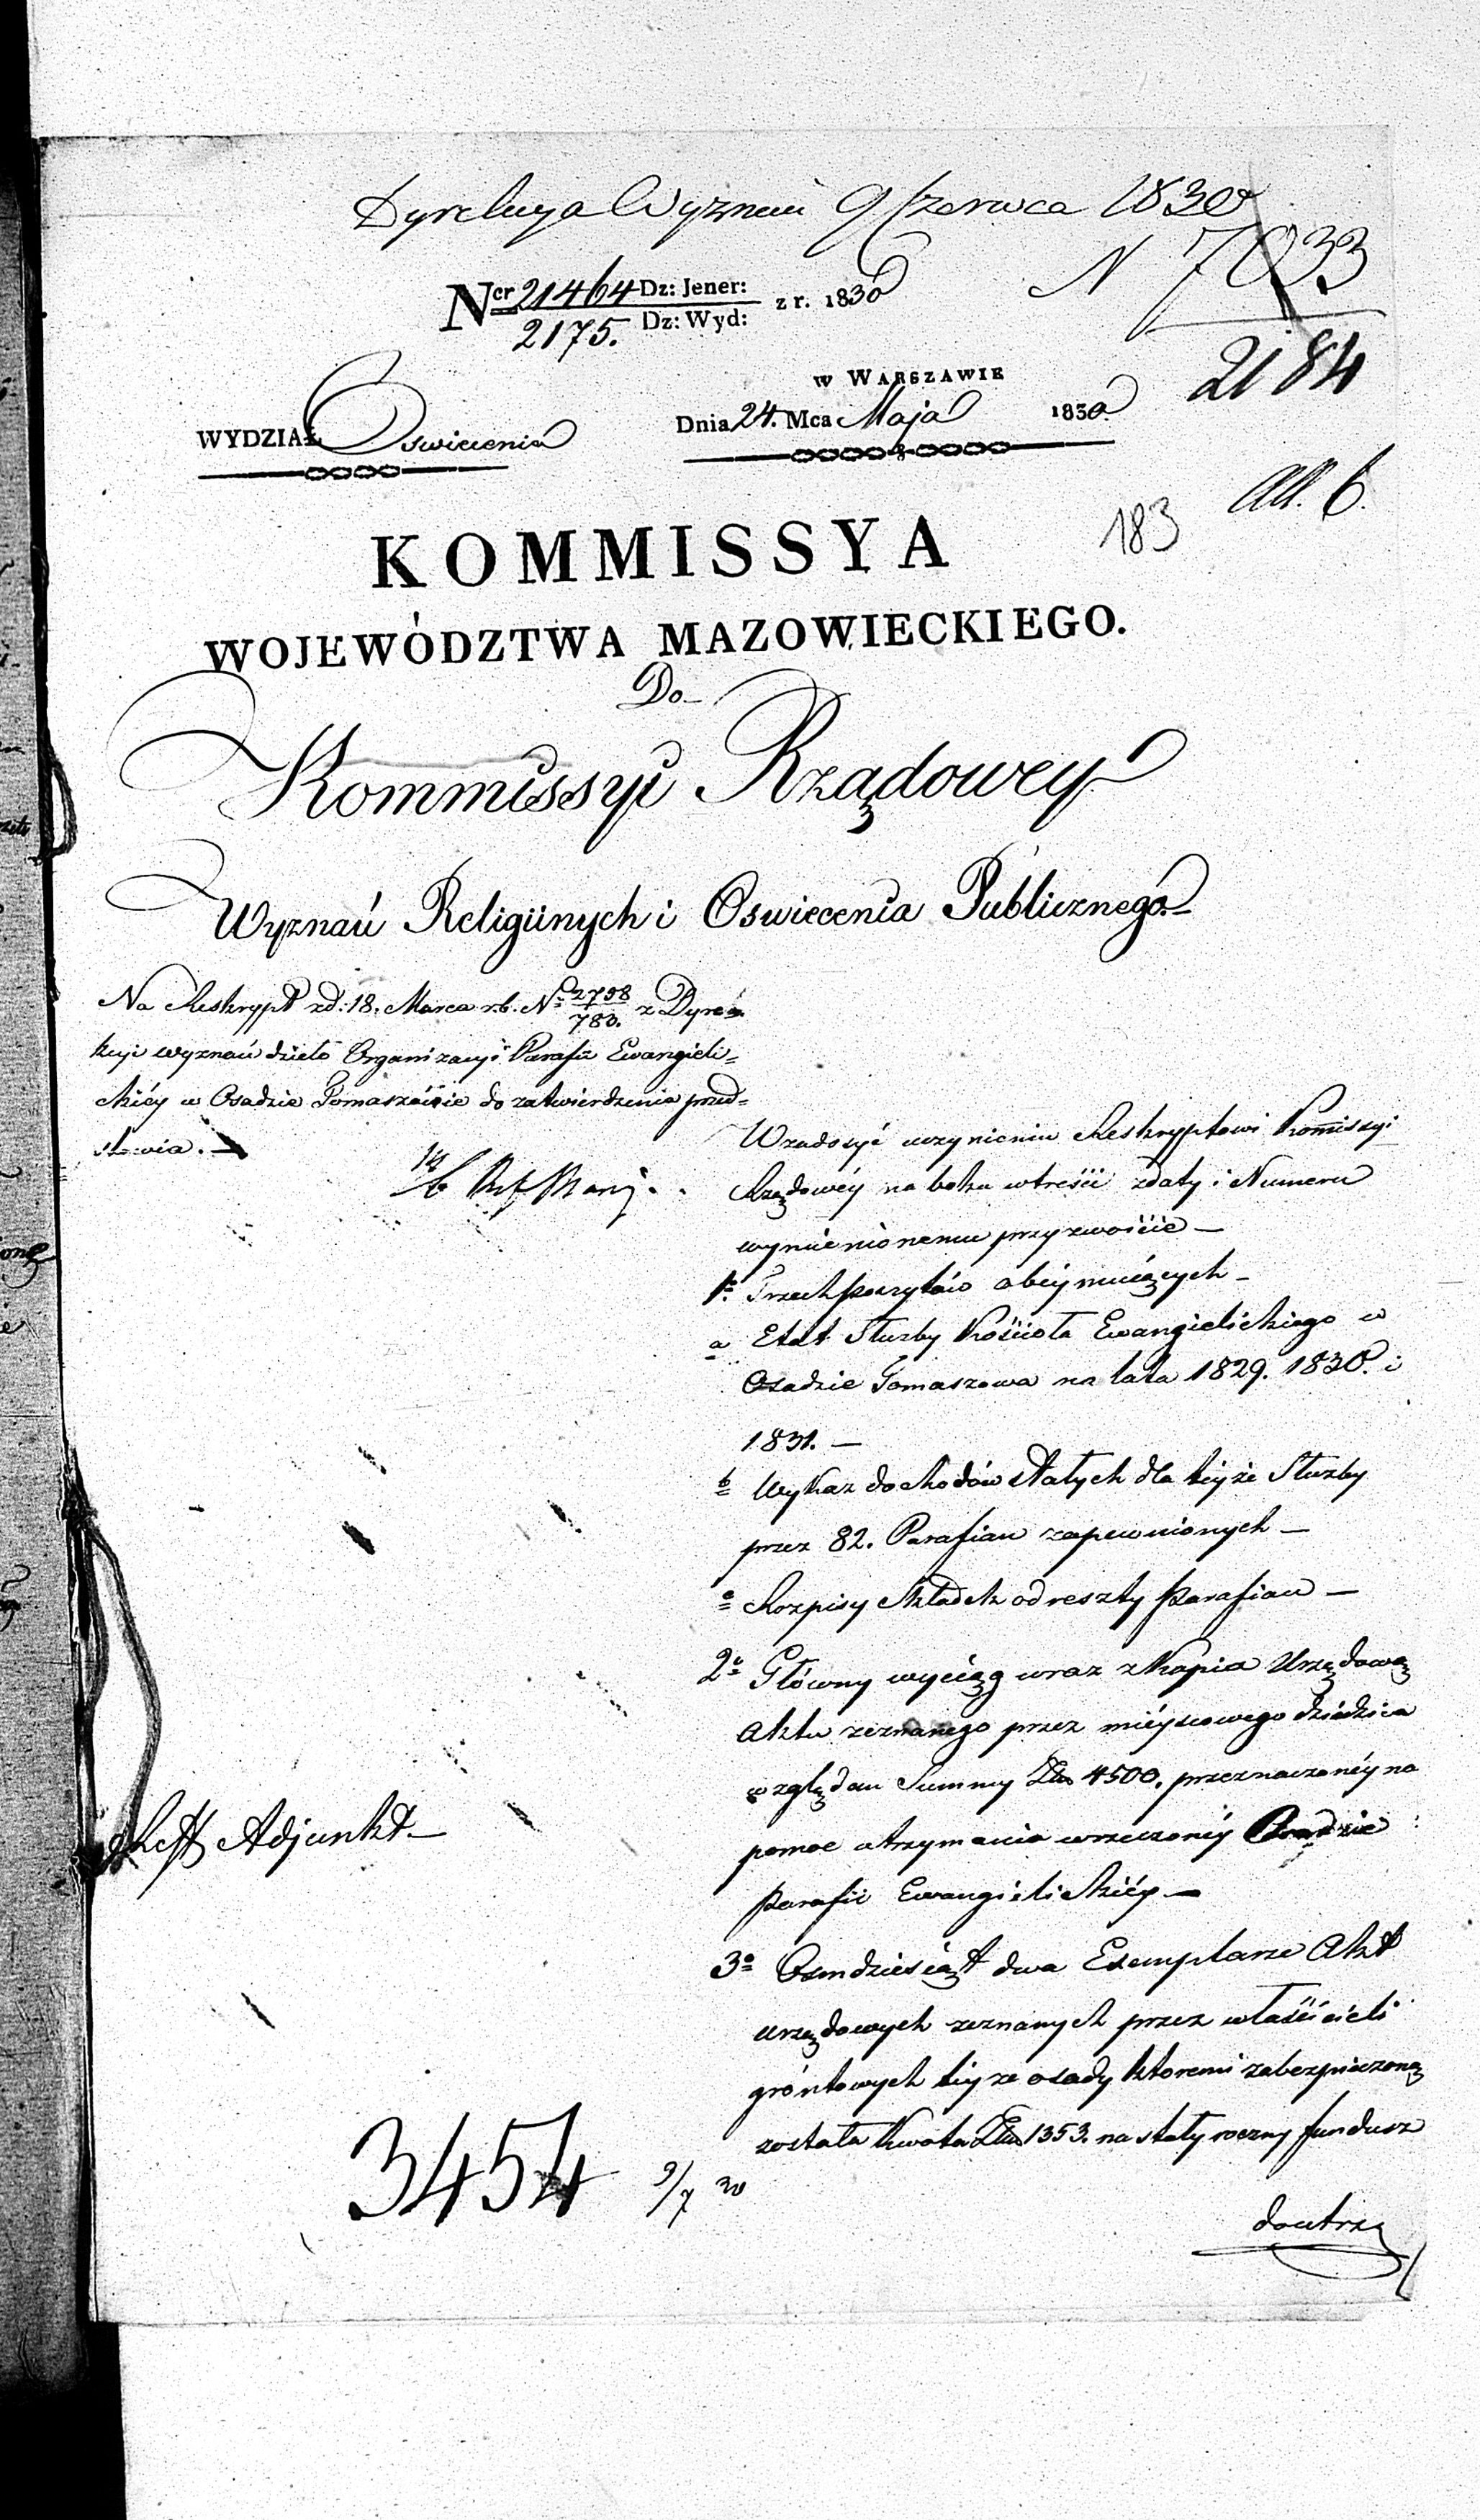 Dyrekcya Wyznań 9 Czerwca 1830
N 7033
2184
Ncr 21464 Dz: Jener:
2175. Dz: Wyd: z r. 1830
w WARSZAWIE
Dnia 24. Mca Maja 1830
WYDZIAŁ Oswiecenia
All. 6.
183
KOMMISSYA
WOJEWÓDZTWA MAZOWIECKIEGO.
Do
Kommissyi Rządowey
Wyznań Religiinych i Oswiecenia Publicznego
Na Reskrypt z d: 18. Marca r.b. No 2798
783. z Dyre=
kcyi wyznań dzieło Organizacyi Parafii Ewangieli=
ckiéy w Osadzie Tomaszowie do zatwierdzenia przed=
stawia.
Wzadosyć uczynieniu Reskryptowi Kommissyi
Rządowéy na boku w treści z daty i Numeru
wymienionemu przyzwoicie
1o Trzech poszytów obeymuiących
a Etat Służby Kościoła Ewangielickiego w
Osadzie Tomaszowa na lata 1829. 1830. i
1831.
b Wykaz dochodów stałych dla teyże Służby
przez 82. Parafian zapewnionych
c Rozpisy składek od reszty parafian
2o Główny wyciąg wraz z Kopia Urzędową
Aktu zeznanego przez mieyscowego dziedzica
względem Summy Złp 4500. przeznaczonéy na
pomoc utrzymania wrzeczonéy
parafii Ewangielickiéy
3o Osmdziesiąt dwa Exemplarze Akt
urzędowych zeznanych przez właścicieli
gróntowych teyże osady ktoremi zabezpieczoną
została kwota Złp 1353. na stały roczny fundusz
Adjunkt
3454 9/7 30
do utrzy